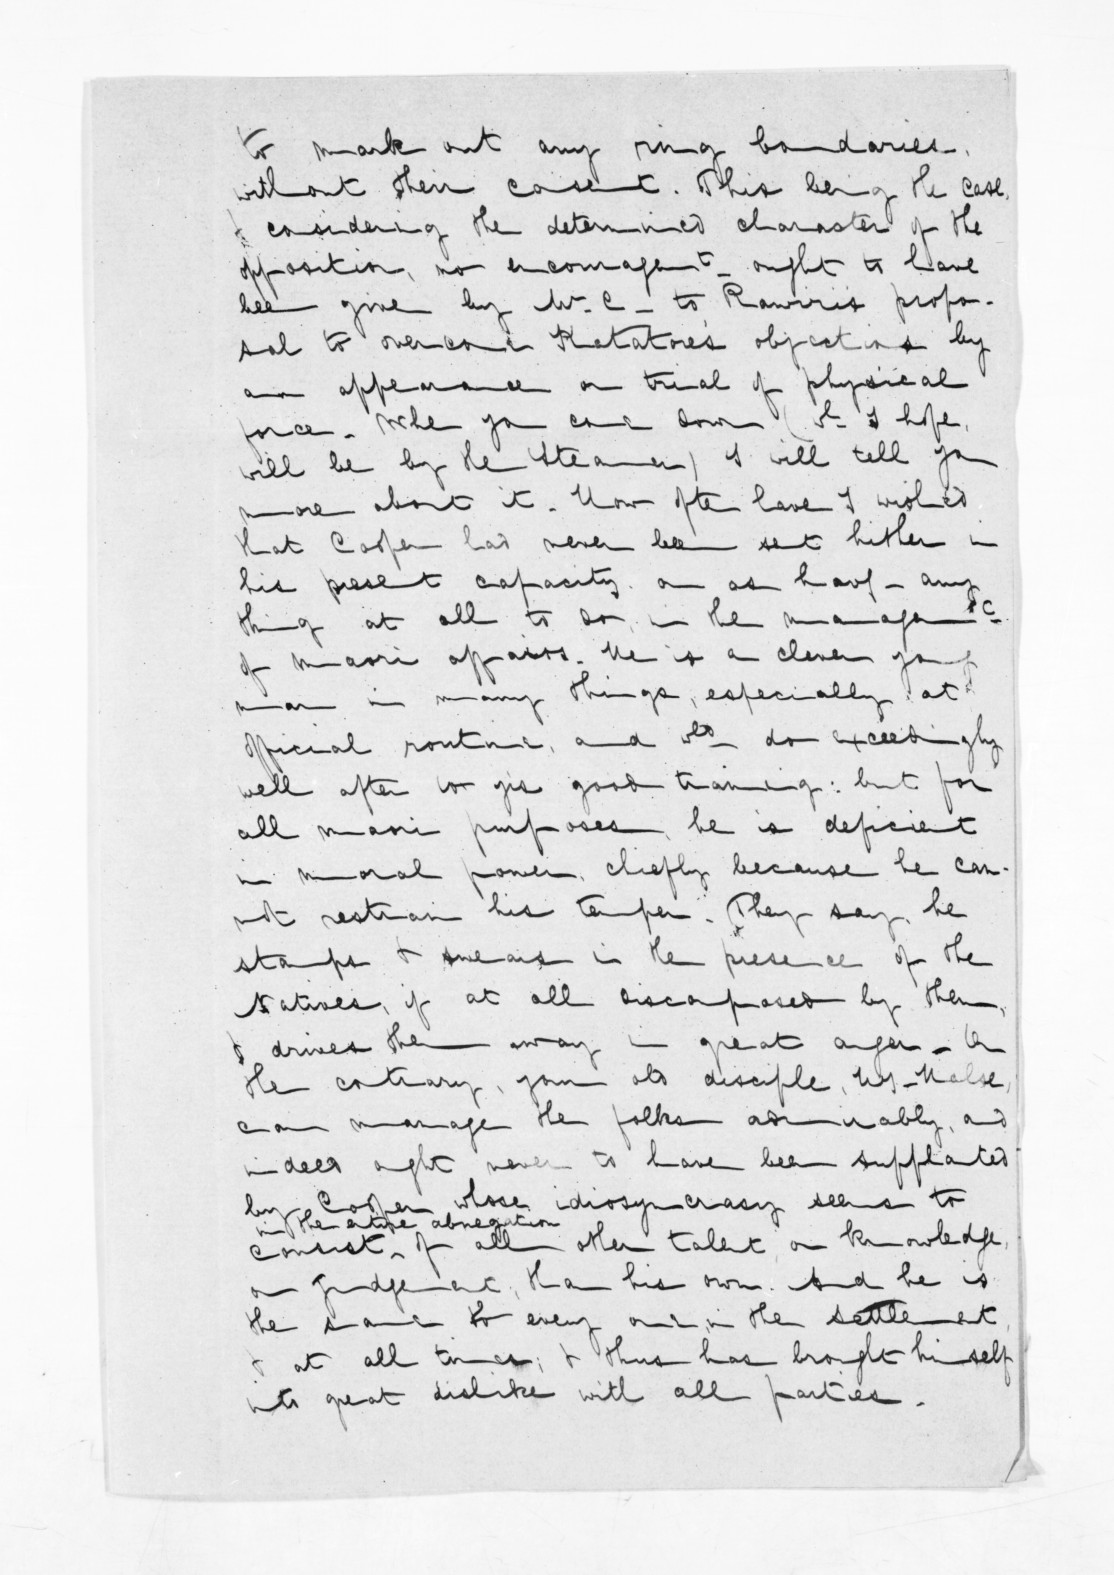 to mark out any ring boundaries,
without their consent. This being the case,
& considering the determined character of the
opposition, no encouragemt. ought to have
been given by Mr. C - to Rawiri's propo-
sal to overcome Katatore's objections by
an appearance or trial of physical
force. When you come down (wh. I hope,
will be by the Steamer) I will tell you
more about it. How often have I wished
that Cooper had never been sent hither in
his present capacity, or as havg. any
thing at all to do, in the management
of maori affairs. He is a clever young
man in many things, especially at
official routine, and wld. do exceedingly
well after two yrs good training: but for
all maori purposes, he is deficient
in moral power, chiefly because he can-
not restrain his temper. They say, he
stamps & swears in the presence of the
Natives, if at all discomposed by them,
& drives them away in great anger. On
the contrary, your old disciple, Mr. Halse,
can manage the folks admirably, and
indeed ought never to have been supplanted
by Cooper whose idiosyncrasy seems to
in the entire abnegation
consist - of all other talent, or knowledge,
or Judgement, than his own. And he is
the same to every one, in the settlement,
& at all times; & thus has brought himself
into great dislike with all parties.